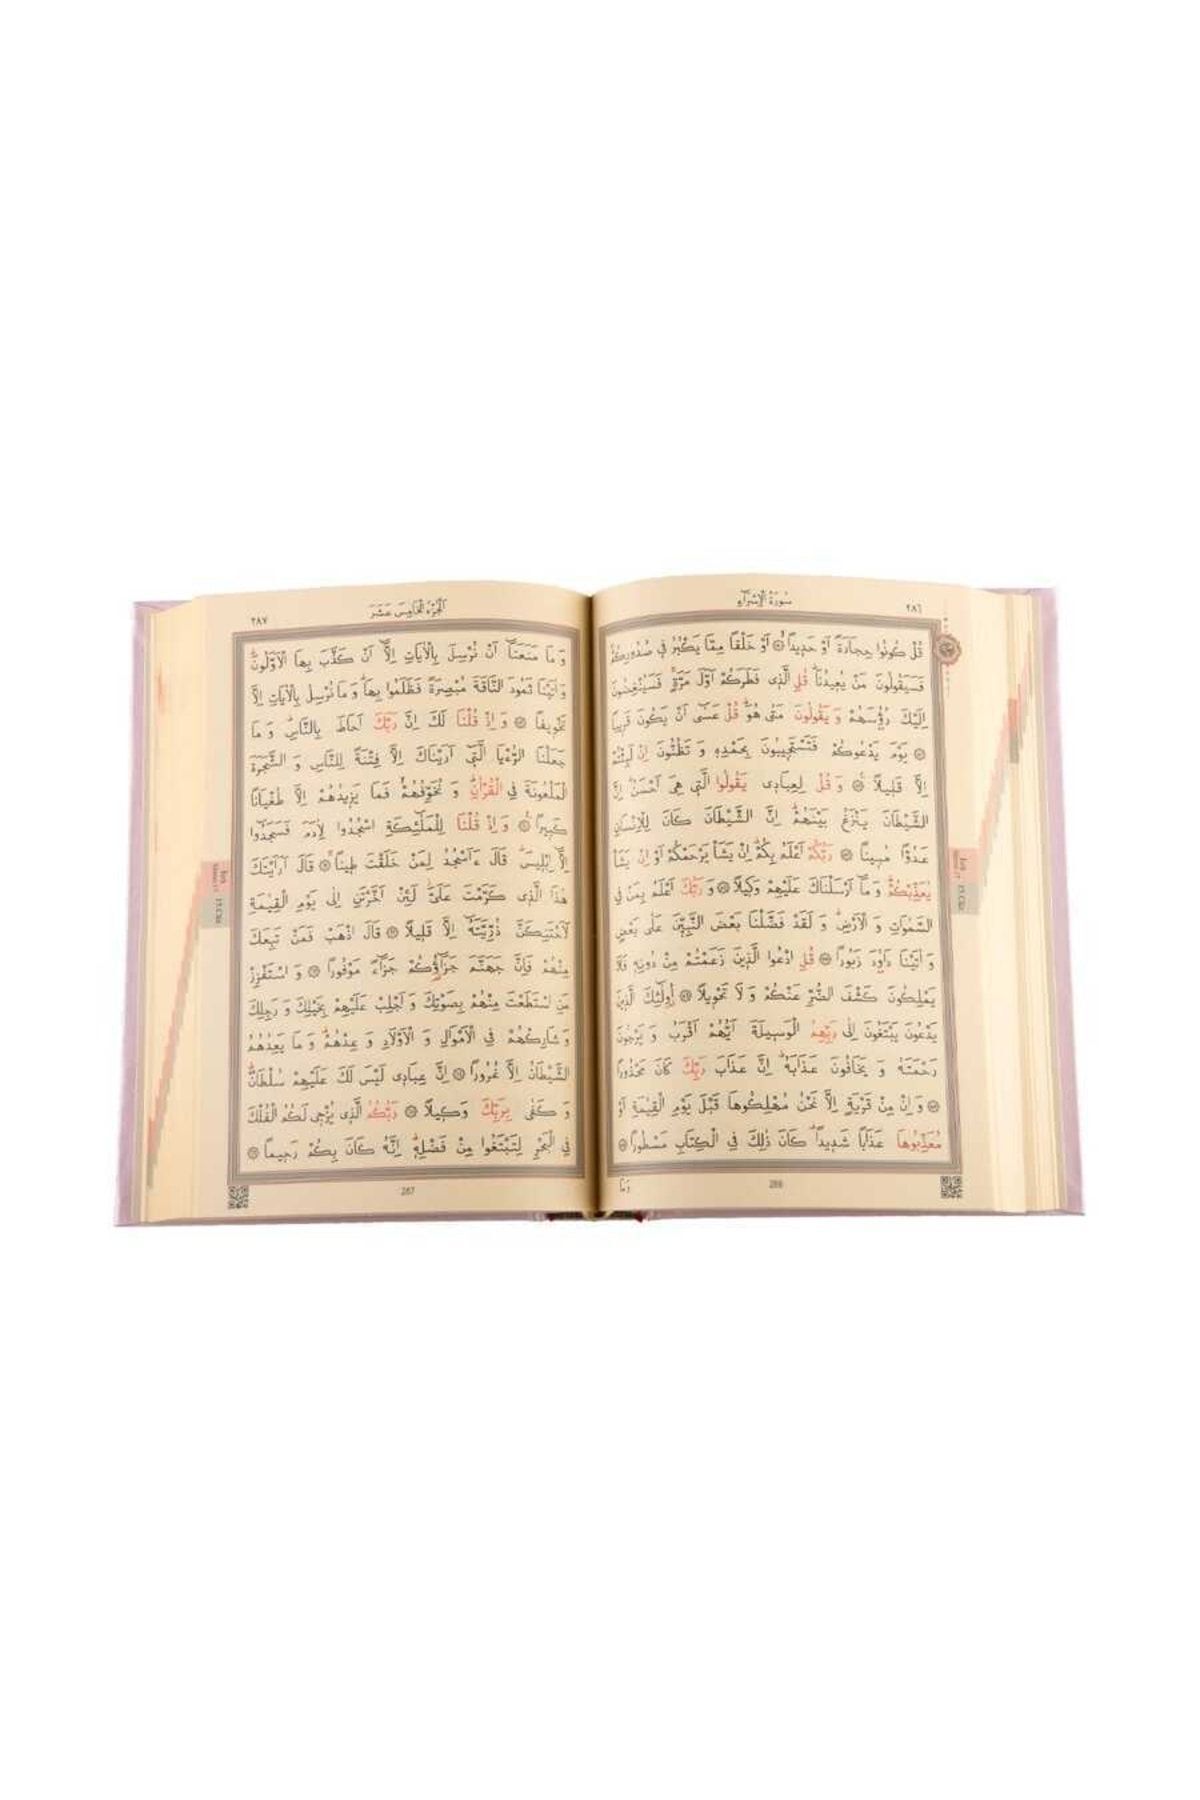 سُورَةُ الْاِسْرَاءِ
٢٨٦
قُلْ كُونُوا حِجَارَةً اَوْ حَدِيدًاۙ ۝ اَوْ خَلْقًا مِمَّا يَكْبُرُ فِي صُدُورِكُمْۚ
فَسَيَقُولُونَ مَنْ يُعِيدُنَاۜ قُلِ الَّذِي فَطَرَكُمْ اَوَّلَ مَرَّةٍۚ فَسَيُنْغِضُونَ
اِلَيْكَ رُؤُسَهُمْ وَ يَقُولُونَ مَتٰى هُوَۜ قُلْ عَسٰٓى اَنْ يَكُونَ قَرِيبًا
۝ يَوْمَ يَدْعُوكُمْ فَتَسْتَجِيبُونَ بِحَمْدِهٖ وَ تَظُنُّونَ اِنْ لَبِثْتُمْ
اِلَّا قَلِيلًا۟ ۝ وَ قُلْ لِعِبَادِي يَقُولُوا الَّتِي هِيَ اَحْسَنُۜ اِنَّ
الشَّيْطَانَ يَنْزَغُ بَيْنَهُمْۜ اِنَّ الشَّيْطَانَ كَانَ لِلْاِنْسَانِ
عَدُوًّا مُبِينًا ۝ رَبُّكُمْ اَعْلَمُ بِكُمْۜ اِنْ يَشَأْ يَرْحَمْكُمْ اَوْ اِنْ يَشَأْ
يُعَذِّبْكُمْۜ وَ مَٓا اَرْسَلْنَاكَ عَلَيْهِمْ وَكِيلًا ۝ وَ رَبُّكَ اَعْلَمُ بِمَنْ فِي
السَّمٰوَاتِ وَ الْاَرْضِۜ وَ لَقَدْ فَضَّلْنَا بَعْضَ النَّبِيّٖنَ عَلٰى بَعْضٍ
وَ اٰتَيْنَا دَاوُ۫دَ زَبُورًا ۝ قُلِ ادْعُوا الَّذِينَ زَعَمْتُمْ مِنْ دُونِهٖ فَلَا
يَمْلِكُونَ كَشْفَ الضُّرِّ عَنْكُمْ وَ لَا تَحْوِيلًا ۝ اُو۬لٰٓئِكَ الَّذِينَ
يَدْعُونَ يَبْتَغُونَ اِلٰى رَبِّهِمُ الْوَسِيلَةَ اَيُّهُمْ اَقْرَبُ وَ يَرْجُونَ
رَحْمَتَهُ وَ يَخَافُونَ عَذَابَهُۜ اِنَّ عَذَابَ رَبِّكَ كَانَ مَحْذُورًا
۝ وَ اِنْ مِنْ قَرْيَةٍ اِلَّا نَحْنُ مُهْلِكُوهَا قَبْلَ يَوْمِ الْقِيٰمَةِ اَوْ
مُعَذِّبُوهَا عَذَابًا شَدِيدًاۜ كَانَ ذٰلِكَ فِي الْكِتَابِ مَسْطُورًا ۝
286
وَمَا
٢٨٧
اَلْجُزْءُ الْخَامِسَ عَشَرَ
وَ مَا مَنَعَنَٓا اَنْ نُرْسِلَ بِالْاٰيَاتِ اِلَّٓا اَنْ كَذَّبَ بِهَا الْاَوَّلُونَۜ
وَ اٰتَيْنَا ثَمُودَ النَّاقَةَ مُبْصِرَةً فَظَلَمُوا بِهَاۜ وَ مَا نُرْسِلُ بِالْاٰيَاتِ اِلَّا
تَخْوِيفًا ۝ وَ اِذْ قُلْنَا لَكَ اِنَّ رَبَّكَ اَحَاطَ بِالنَّاسِۜ وَ مَا
جَعَلْنَا الرُّءْيَا الَّتِٓي اَرَيْنَاكَ اِلَّا فِتْنَةً لِلنَّاسِ وَ الشَّجَرَةَ
الْمَلْعُونَةَ فِي الْقُرْاٰنِۜ وَ نُخَوِّفُهُمْۙ فَمَا يَزِيدُهُمْ اِلَّا طُغْيَانًا
كَبِيرًا۟ ۝ وَ اِذْ قُلْنَا لِلْمَلٰٓئِكَةِ اسْجُدُوا لِاٰدَمَ فَسَجَدُٓوا
اِلَّٓا اِبْلِيسَۜ قَالَ ءَاَسْجُدُ لِمَنْ خَلَقْتَ طِينًاۚ ۝ قَالَ اَرَاَيْتَكَ
هٰذَا الَّذِي كَرَّمْتَ عَلَيَّۘ لَئِنْ اَخَّرْتَنِ اِلٰى يَوْمِ الْقِيٰمَةِ
لَاَحْتَنِكَنَّ ذُرِّيَّتَهُٓ اِلَّا قَلِيلًا ۝ قَالَ اذْهَبْ فَمَنْ تَبِعَكَ
مِنْهُمْ فَاِنَّ جَهَنَّمَ جَزَٓاؤُ۬كُمْ جَزَٓاءً مَوْفُورًا ۝ وَ اسْتَفْزِزْ
مَنِ اسْتَطَعْتَ مِنْهُمْ بِصَوْتِكَ وَ اَجْلِبْ عَلَيْهِمْ بِخَيْلِكَ وَ رَجِلِكَ
وَ شَارِكْهُمْ فِي الْاَمْوَالِ وَ الْاَوْلَادِ وَ عِدْهُمْۜ وَ مَا يَعِدُهُمُ
الشَّيْطَانُ اِلَّا غُرُورًا ۝ اِنَّ عِبَادِي لَيْسَ لَكَ عَلَيْهِمْ سُلْطَانٌۜ
وَ كَفٰى بِرَبِّكَ وَكِيلًا ۝ رَبُّكُمُ الَّذِي يُزْجِي لَكُمُ الْفُلْكَ
فِي الْبَحْرِ لِتَبْتَغُوا مِنْ فَضْلِهٖۜ اِنَّهُ كَانَ بِكُمْ رَحِيمًا ۝
287